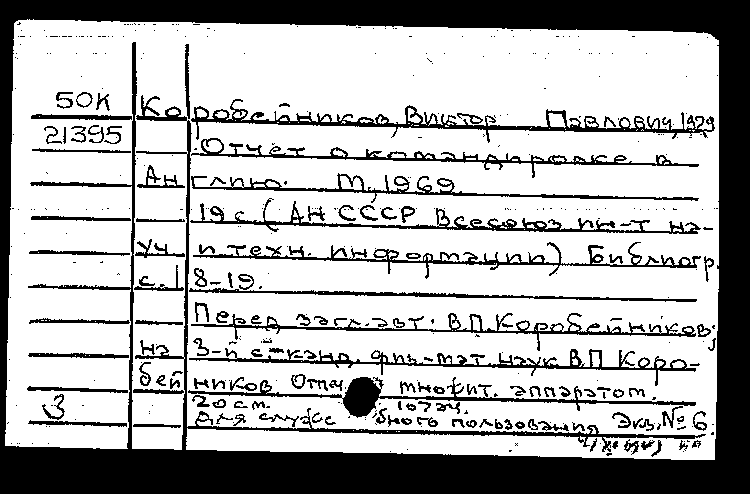 50К Коробейников, Виктор Павлович, 1929
21395 Отчет о командировке в
Англию. М., 1969.
19 с. (АН СССР Всесоюз ин-т на-
уч и техн. информации) Библиогр.
с. 18-19.
Перед загл. авт: В.П. Коробейников,
на 3-й с - канд. физ-мат. наук В.П Коро-
бейников Отпеч. множит. аппаратом.
20 см.
3 Для служебного пользования Экз. № 6.